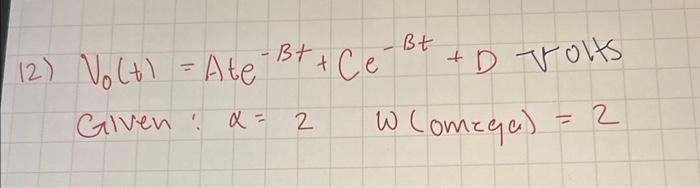 12) V₀(t) = Ate^-Bt + Ce^-Bt + D volts
Given : α = 2 W(omega) = 2